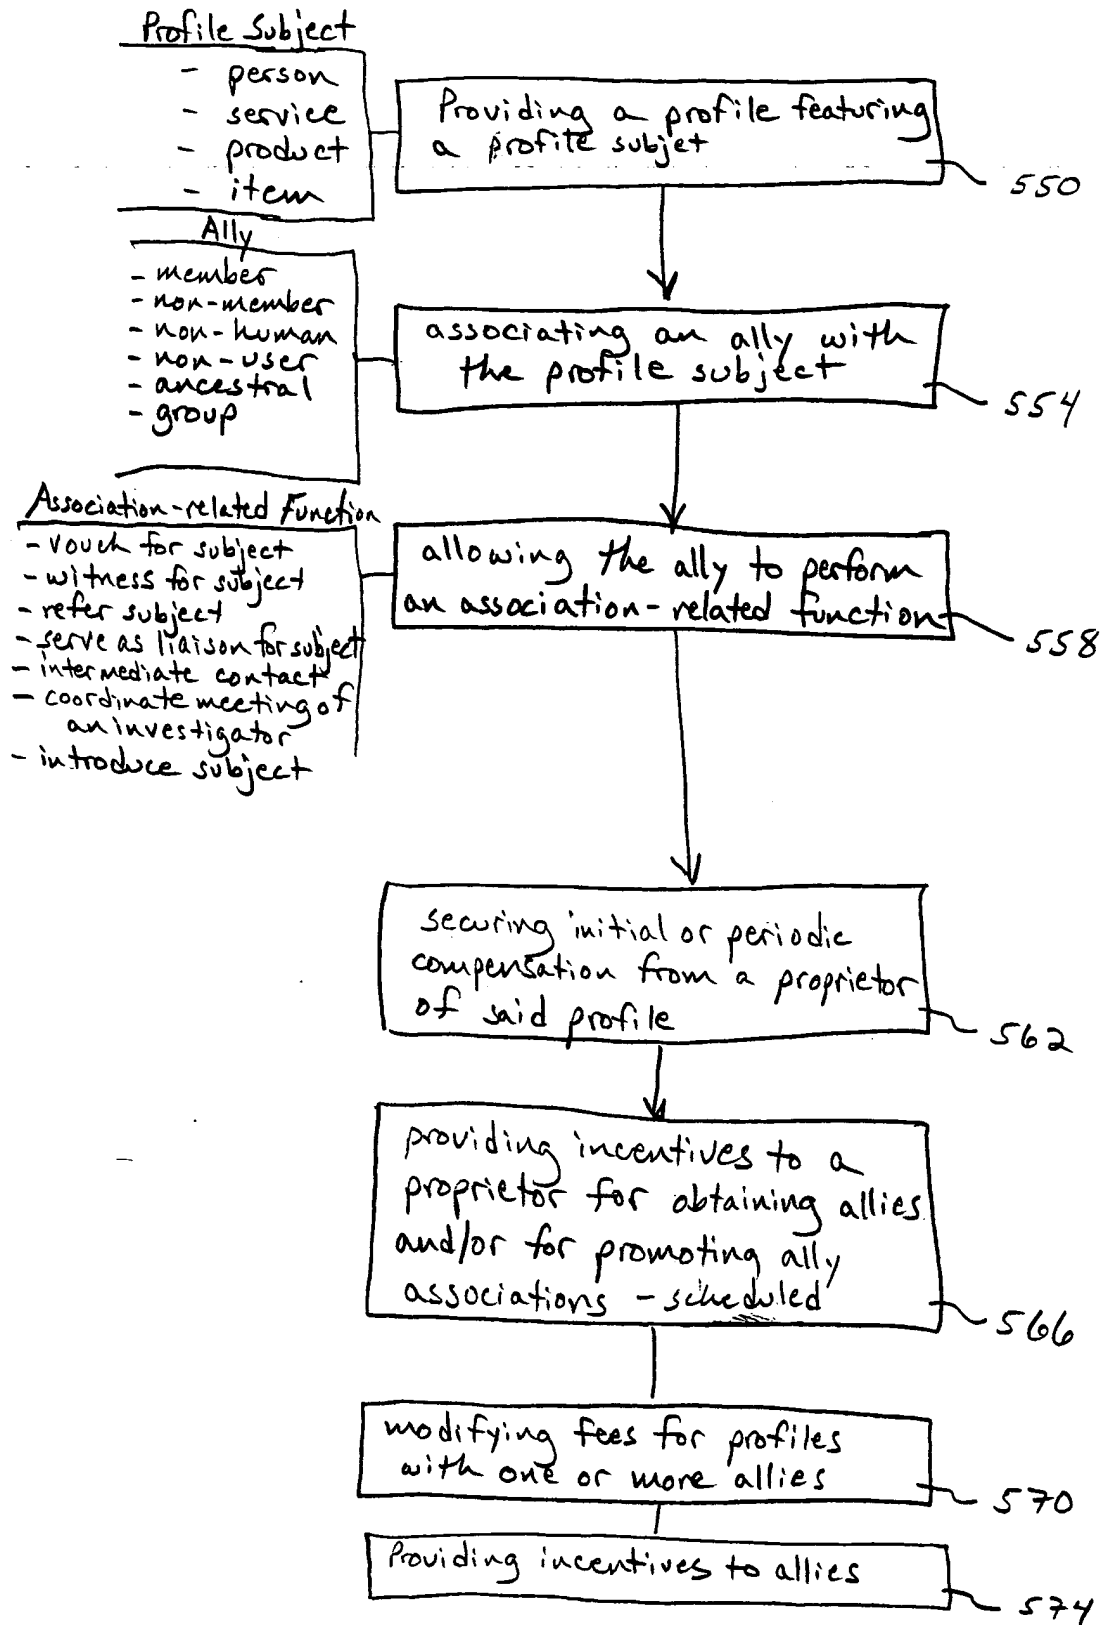 Profile Subject
- person
- service
- product
- item
Providing a profile featuring
a profile subjet
550
Ally
- member
- non-member
- non-human
- non-user
- ancestral
- group
associating an ally with
the profile subject
554
Association-related Function
- vouch for subject
- witness for subject
- refer subject
- serve as liaison for subject
- intermediate contact
- coordinate meeting of
an investigator
- introduce subject
allowing the ally to perform
an association-related function
558
securing initial or periodic
compensation from a proprietor
of said profile
562
providing incentives to a
proprietor for obtaining allies
and/or for promoting ally
associations - scheduled
566
modifying fees for profiles
with one or more allies
570
Providing incentives to allies
574